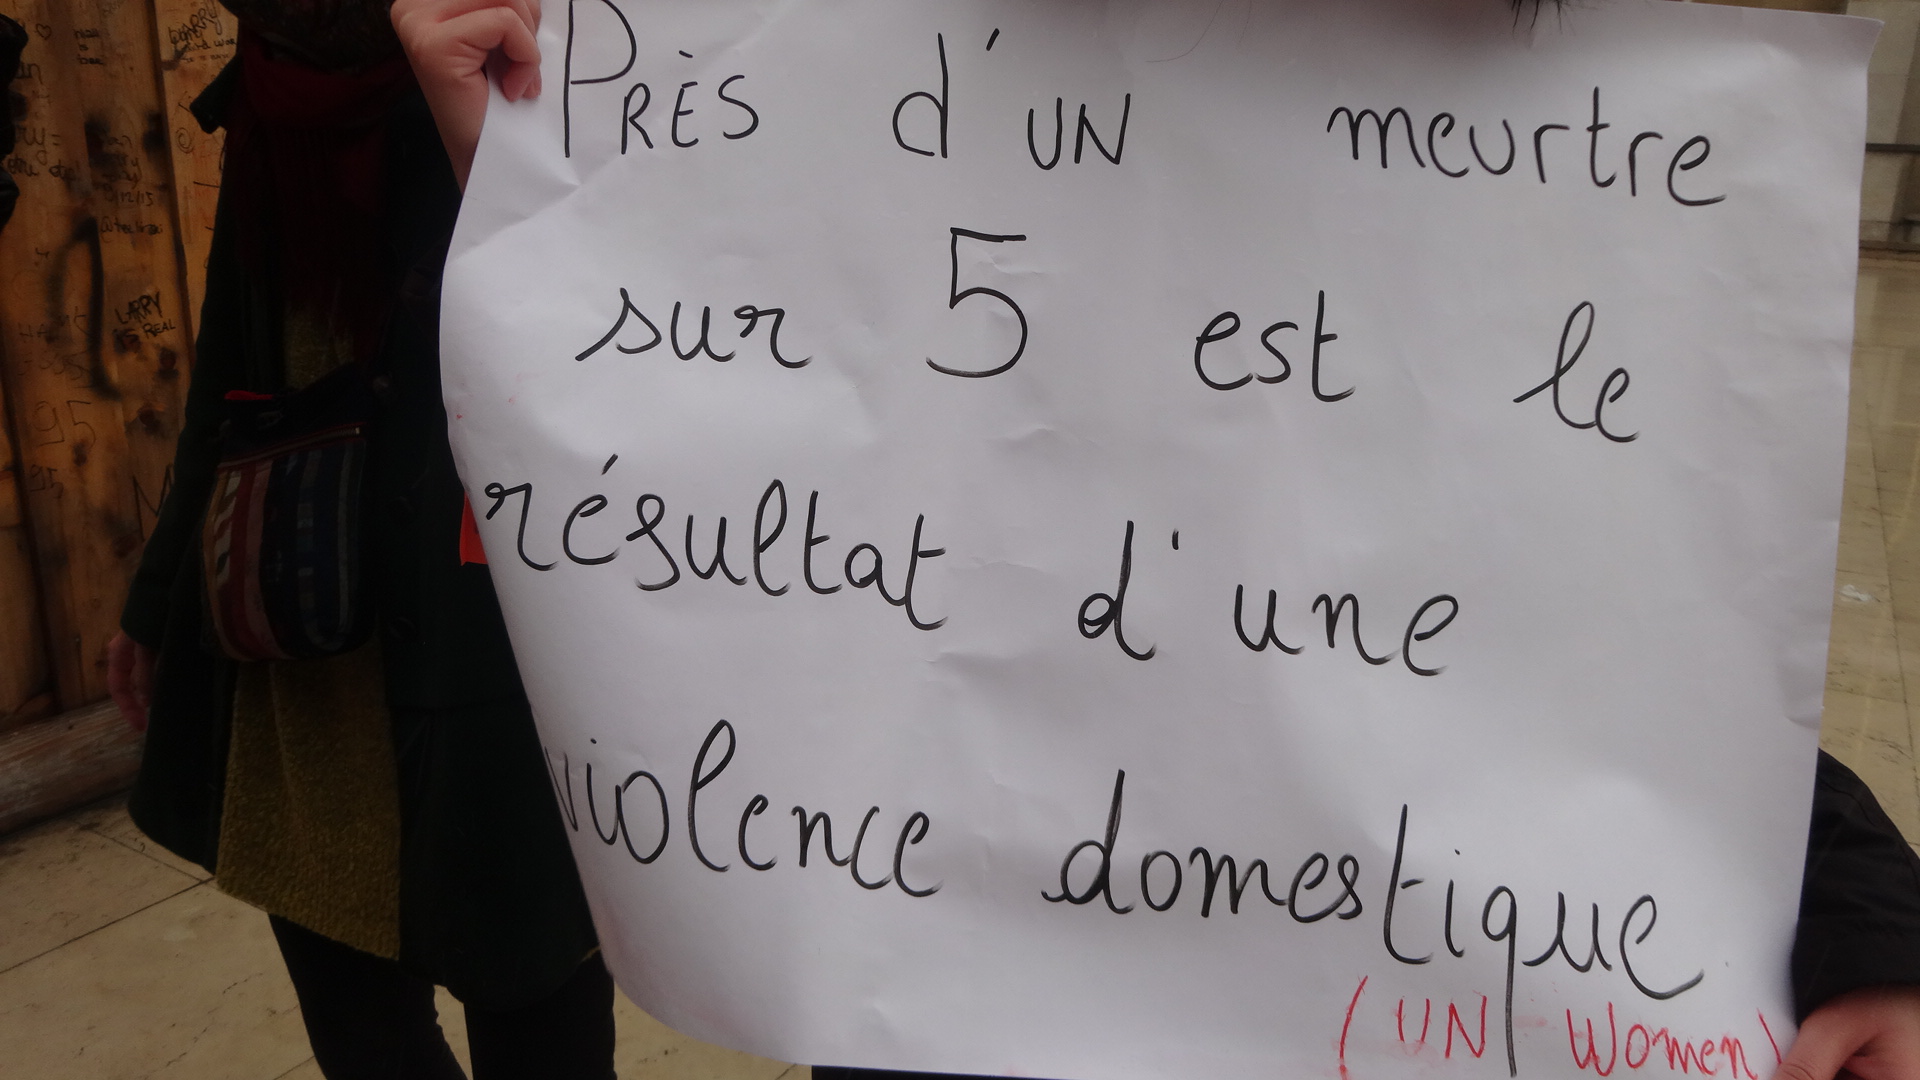 PRÈS d'UN meurtre
sur 5 est le
résultat d'une
violence domestique
(UN Women)
LARRY
IS REAL
95